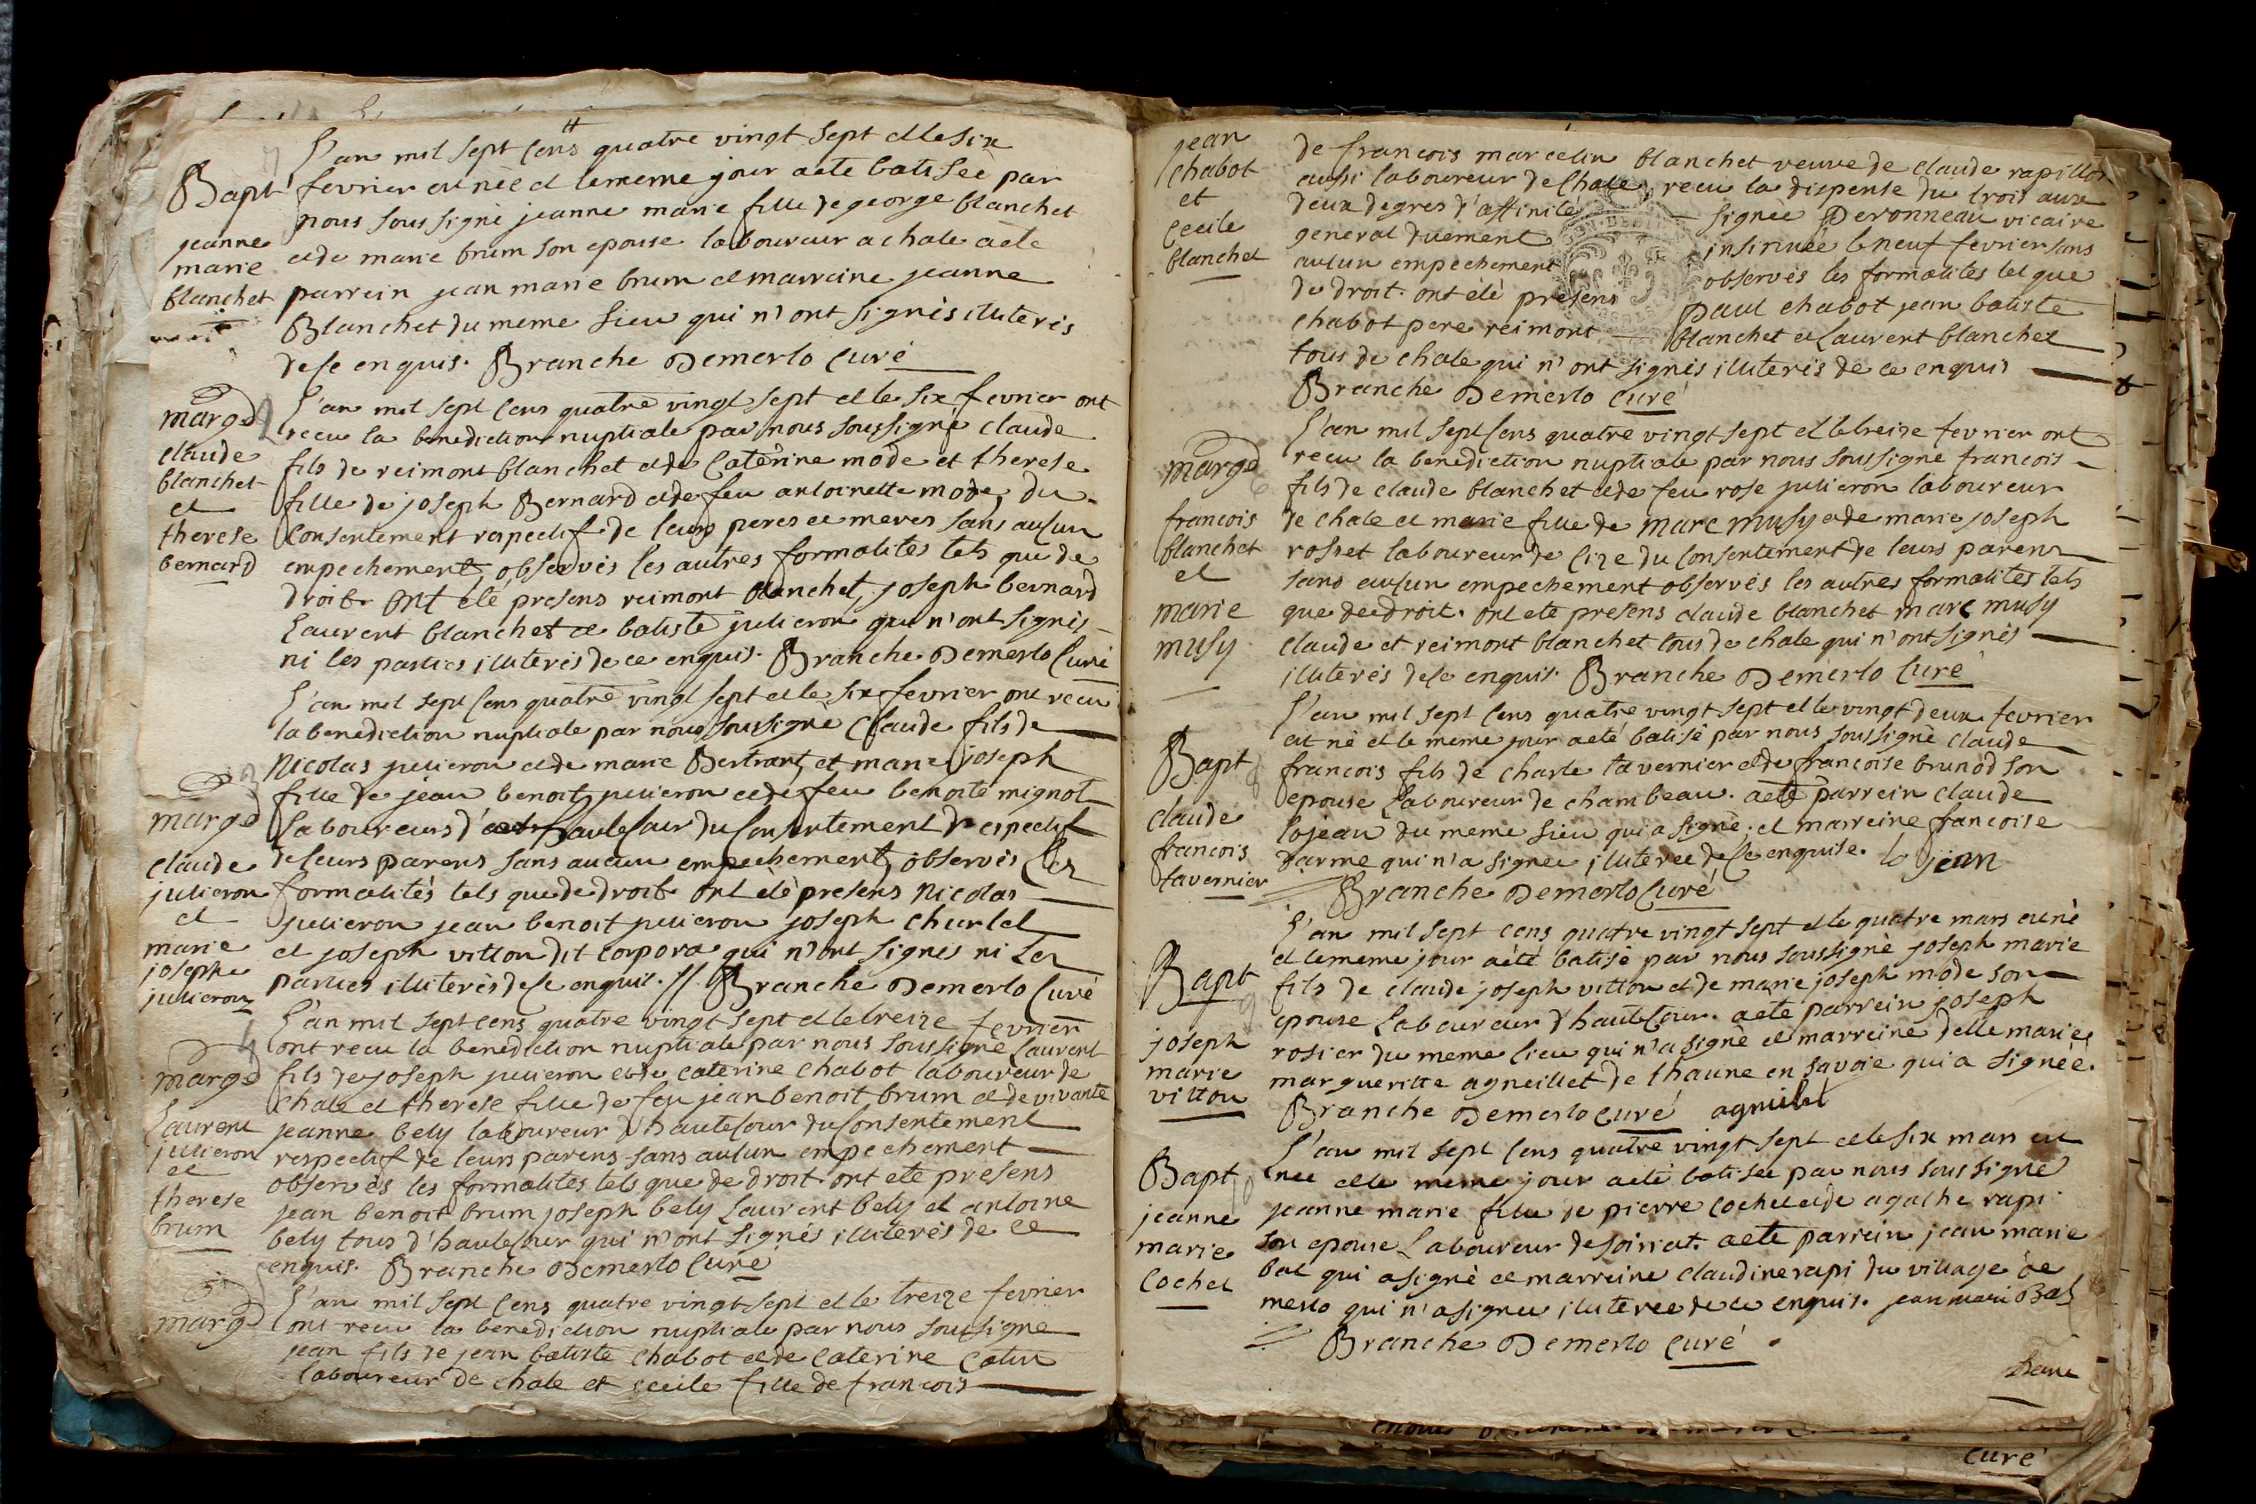 L'an mil sept cens quatre vingt sept et le six
Bapt fevrier est née et le meme jour a eté batisée par
nous soussigné jeanne marie fille de george blanchet
jeanne marie blanchet
et de marie brum son epouse laboureur a chale a ete
parrein jean marie brum et marraine jeanne
Blanchet du meme lieu qui n'ont signés illiterés
de ce enquis. Branche Demerlo Curé
marge
claude
blanchet
et
therese
bernard
L'an mil sept cens quatre vingt sept et le six fevrier ont
recu la benediction nuptiale par nous soussigné claude
fils de reimont blanchet et de Caterine mode et therese
fille de joseph Bernard et de feu antoinette mode, du
Consentement respectif de leurs peres et meres sans aucun
empechement, observés les autres formalites tels que de
droit. Ont eté présens reimont blanchet, joseph bernard
Laurent blanchet et batiste julieron qui n'ont signés
ni les parties illiterés de ce enquis. Branche Demerlo Curé
marge
claude
julieron
et
marie
josephe
julieron
L'an mil sept cens quatre vingt sept et le six fevrier ont recu
la benediction nuptiale par nous soussigné Claude fils de
Nicolas julieron et de marie Bertrant, et marie joseph
fille de jean benoit julieron et de feu benoite mignot
Laboureurs d' hautecour du Consentement respectif
de leurs parens sans aucun empechement, observés les
formalités tels que de droit ont été presens Nicolas
julieron jean benoit julieron joseph churlet
et joseph vitton dit corpora qui n'ont signés ni les
parties illiterés de ce enquis. // Branche Demerlo Curé
marge
Laurent
julieron
et
therese
brum
L'an mil sept cens quatre vingt sept et le treize fevrier
ont recu la benediction nuptiale par nous soussigné Laurent
fils de joseph julieron et de caterine chabot laboureur de
chale et therese fille de feu jean benoit brum et de vivante
jeanne bely laboureur d'hautecour du Consentement
respectif de leurs parens sans aucun empechement
observés les formalites tels que de droit. ont ete presens
jean benoit brum joseph bely Laurent bely et antoine
bely tous d'hautecour qui n'ont signés illiterés de ce
enquis. Branche Demerlo Curé
marge
L'an mil sept cens quatre vingt sept et le treize fevrier
ont recu la benediction nuptiale par nous soussigné
jean fils de jean batiste chabot et de caterine catin
laboureur de chale et cecile fille de francois
jean
chabot
et
Cecile
blanchet
de francois marcelin blanchet veuve de claude rapillot
aussi laboureur de Chale, recu la dispense du trois aux
deux degres d'affinité signée Deronneau vicaire
general duement insinuée le neuf fevrier sans
aucun empechement observés les formalites tel que
de droit. ont été présens paul chabot jean batiste
chabot pere reimont blanchet et Laurent blanchet
tous de chale qui n'ont signés illiterés de ce enquis
Branche Demerlo Curé
marge
francois
blanchet
et
marie
musy
L'an mil sept cens quatre vingt sept et le treize fevrier ont
recu la benediction nuptiale par nous soussigné francois
fils de claude blanchet et de feu rose julieron laboureur
de chale et marie fille de marc musy et de marie joseph
rosset laboureur de cize du Consentement de leurs parens
sans aucun empechement observés les autres formalites tels
que de droit. ont ete presens claude blanchet marc musy
claude et reimont blanchet tous de chale qui n'ont signés
illiterés de ce enquis. Branche Demerlo Curé
Bapt
claude
francois
tavernier
L'an mil sept cens quatre vingt sept et le vingt deux fevrier
est né et le meme jour a eté batisé par nous soussigné claude
francois fils de charle tavernier et de francoise brunod son
epouse Laboureur de chambeau. a eté parrein claude
lojean du meme lieu qui a signé, et marreine francoise
darme qui n'a signée illiteree de ce enquise. lojean
Branche Demerlo Curé
Bapt
joseph
marie
vitton
L'an mil sept cens quatre vingt sept et le quatre mars est né
et le meme jour a été batisé par nous soussigné joseph marie
fils de claude joseph vitton et de marie joseph mode son
epouse Laboureur d'hautecour. a ete parrein joseph
rosier du meme lieu qui n'a signé et marreine delle marie
margueritte agneillet de thaune en savoie qui a signée.
Branche Demerlo Curé agnielet
Bapt
jeanne
marie
Cochet
L'an mil sept cens quatre vingt sept et le six mars est
née et le meme jour a eté batisée par nous soussigné
jeanne marie fille de pierre cochet et de agathe rapi
son epouse Laboureur de soiriat. a ete parrein jean marie
bal qui a signé et marreine claudine rapi du village de
merlo qui n'a signee illiteree de ce enquis. jean marie Bal
Branche Demerlo Curé
Curé